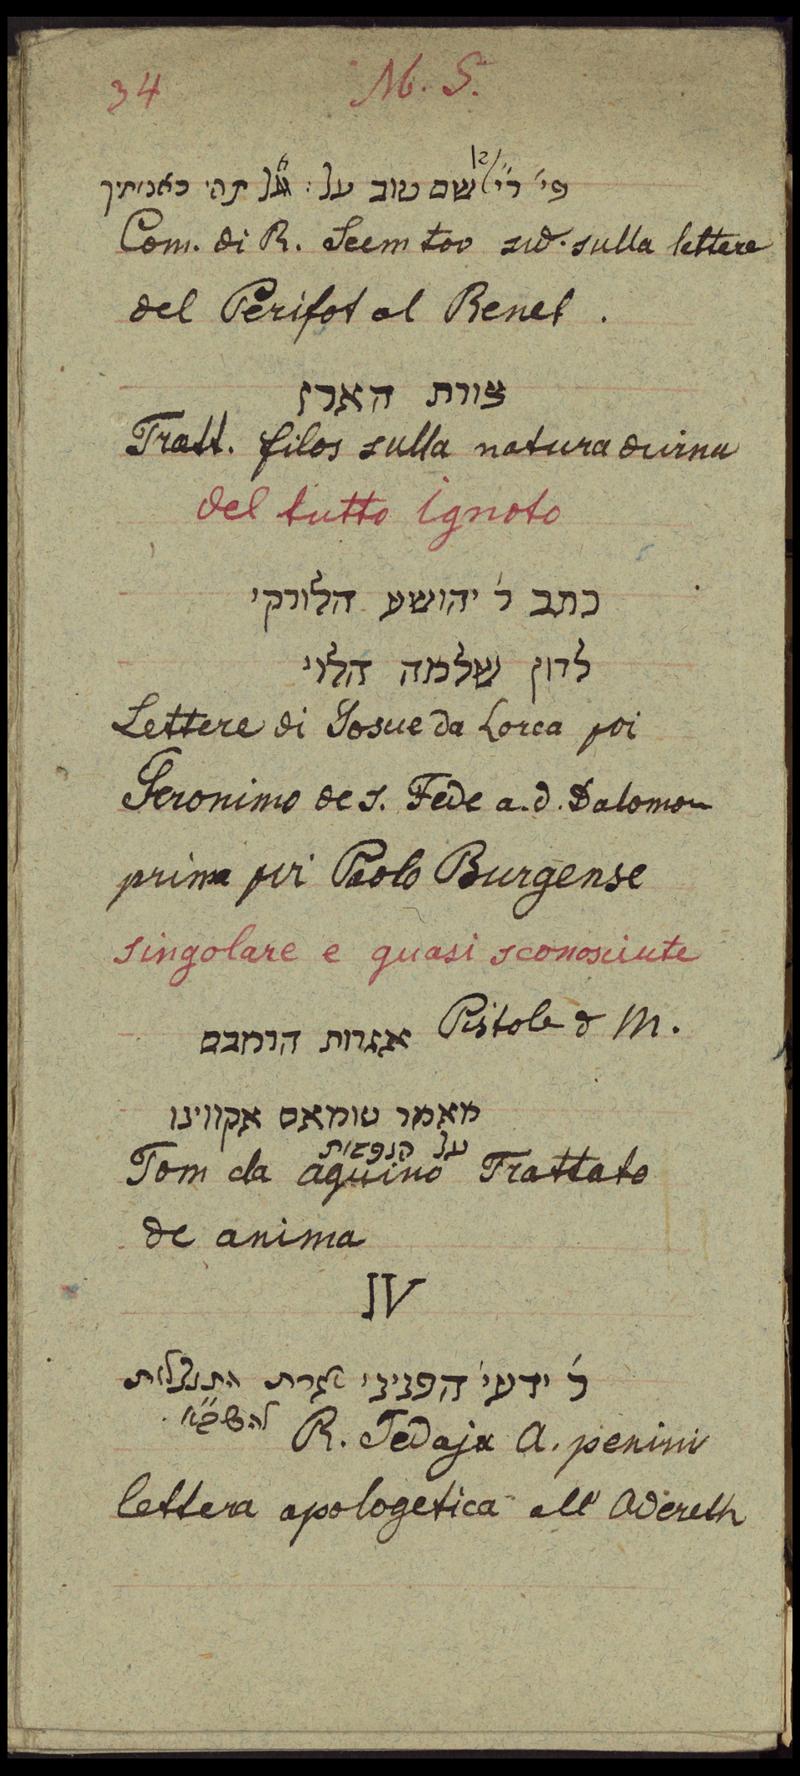 34 M. S.
פי' ר' שם טוב על : אל תהי כאבותיך
Com. di R. Scem tov sud. sulla lettere
del Perifot al Benet .
צורת הארץ
Tratt. filos sulla natura
del tutto ignoto
כתב ר' יהושע הלורקי
לדון שלמה הלוי
Lettere di Josue da Lorca poi
Geronimo de s. Fede a.d. Salomon
prima poi Paolo Burgense
singolare e quasi sconosciute
אגרות הרמבם Pistole d M.
מאמר טומאס אקווינו
על הנפשות
Tom da aquino Trattato
de anima
IV
ר' ידעי' הפניני אגרת התנצלות
להרשב"א
R. Jedaja A. penini
lettera apologetica all' Adereth